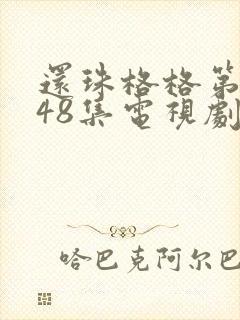 還珠格格第
48集電視劇
哈巴克阿尔巴